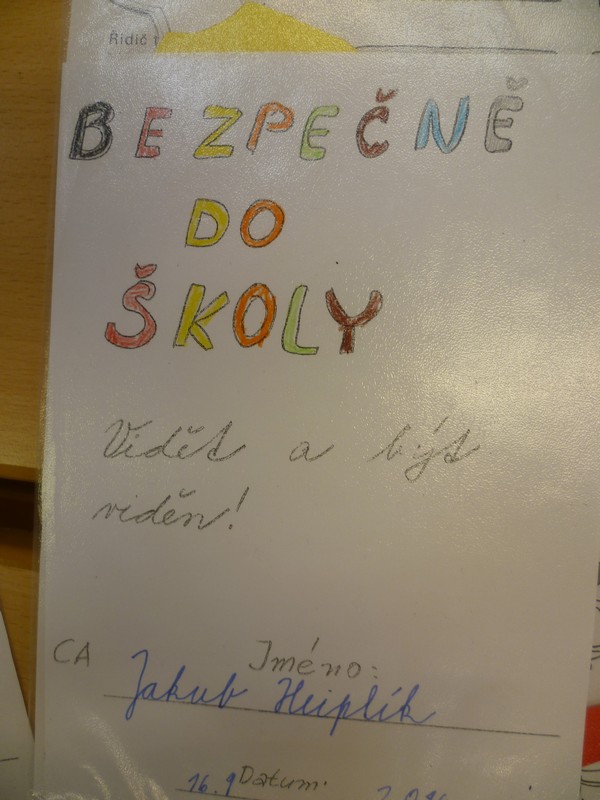 Řidič
BEZPEČNĚ
DO
ŠKOLY
Vidět a být
viděn!
CA Jméno:
Jakub
16.9 Datum: